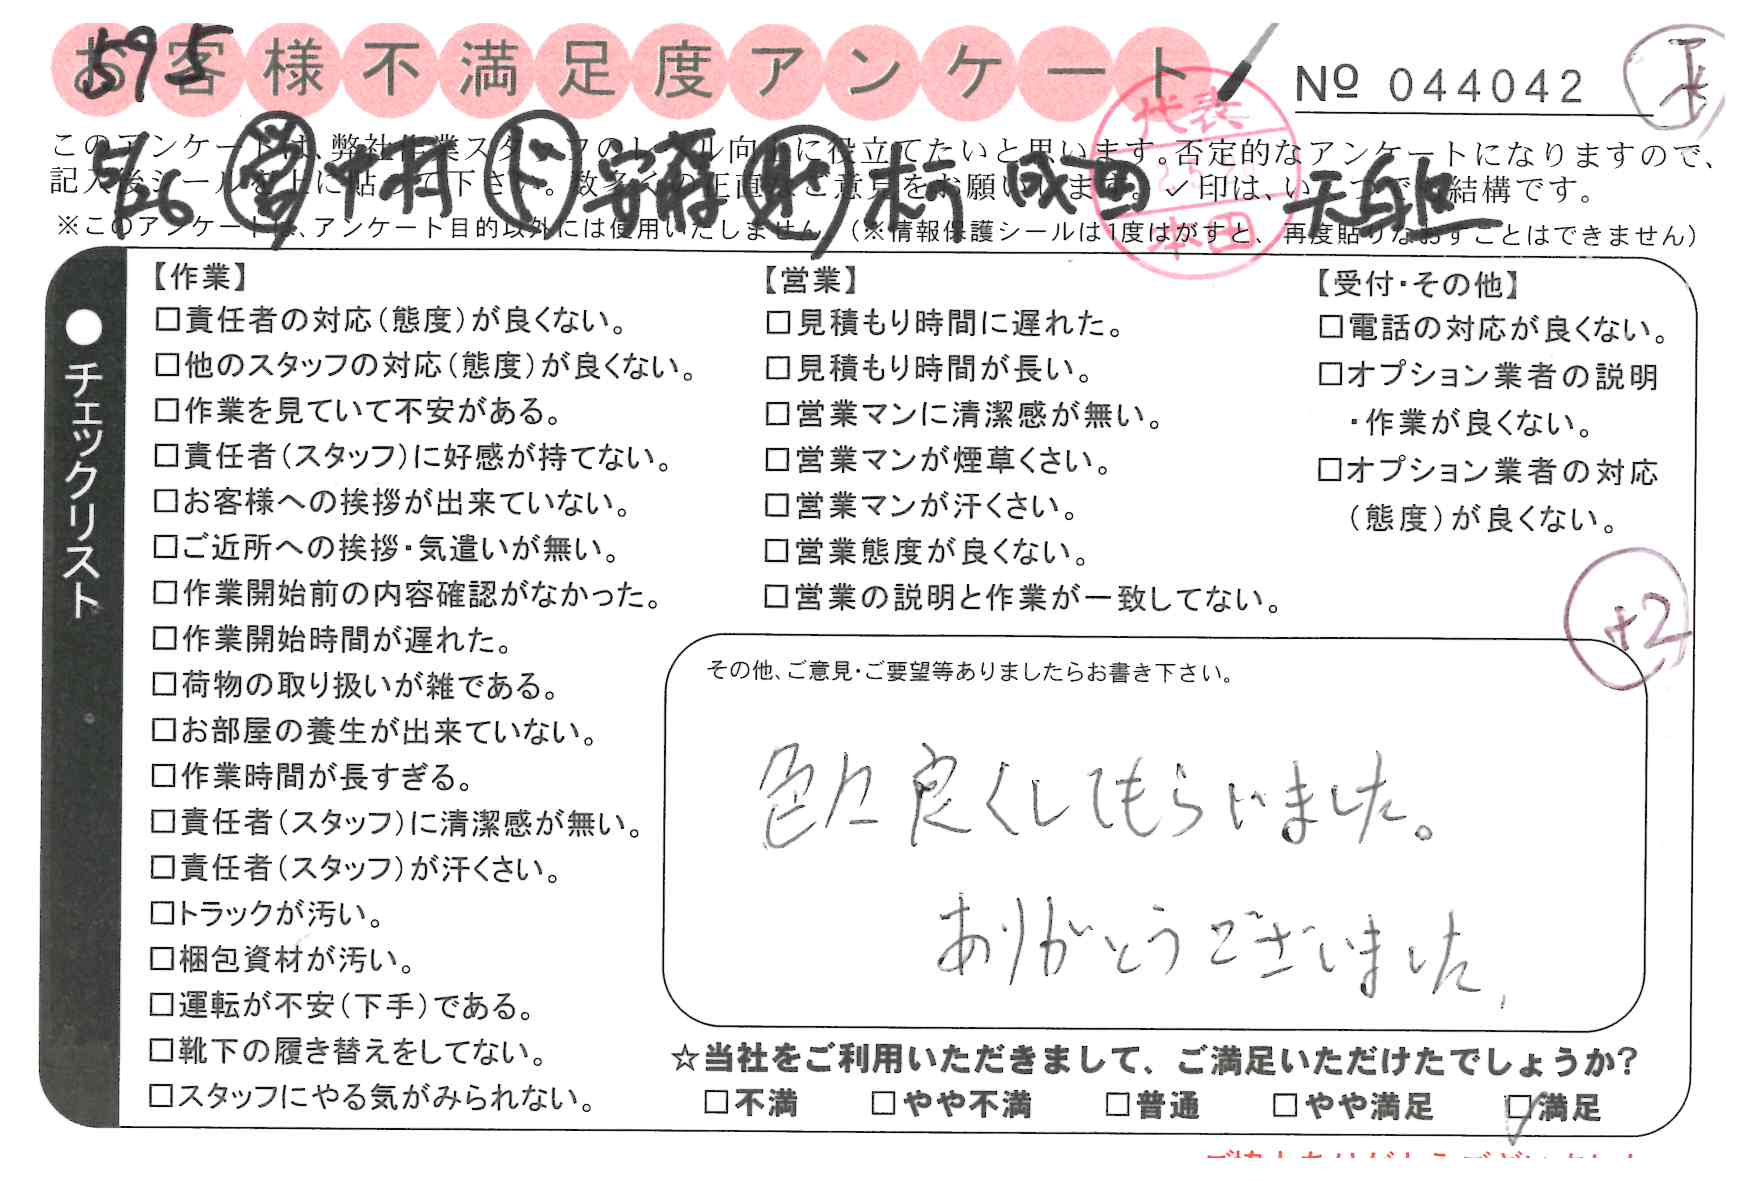 お客様不満足度アンケート
595
№ 044042
このアンケートは、弊社作業スタッフのレベル向上に役立てたいと思います。否定的なアンケートになりますので、
記入後シールを上に貼って下さい。数多くの正直なご意見をお願いします。✓印は、いくつでも結構です。
※このアンケートは、アンケート目的以外には使用いたしません。(※情報保護シールは1度はがすと、再度貼りなおすことはできません)
5/26 営 中村 ド 安森
代表
本田
●チェックリスト
【作業】
□責任者の対応(態度)が良くない。
□他のスタッフの対応(態度)が良くない。
□作業を見ていて不安がある。
□責任者(スタッフ)に好感が持てない。
□お客様への挨拶が出来ていない。
□ご近所への挨拶・気遣いが無い。
□作業開始前の内容確認がなかった。
□作業開始時間が遅れた。
□荷物の取り扱いが雑である。
□お部屋の養生が出来ていない。
□作業時間が長すぎる。
□責任者(スタッフ)に清潔感が無い。
□責任者(スタッフ)が汗くさい。
□トラックが汚い。
□梱包資材が汚い。
□運転が不安(下手)である。
□靴下の履き替えをしてない。
□スタッフにやる気がみられない。
【営業】
□見積もり時間に遅れた。
□見積もり時間が長い。
□営業マンに清潔感が無い。
□営業マンが煙草くさい。
□営業マンが汗くさい。
□営業態度が良くない。
□営業の説明と作業が一致してない。
【受付・その他】
□電話の対応が良くない。
□オプション業者の説明
・作業が良くない。
□オプション業者の対応
(態度)が良くない。
+2
その他、ご意見・ご要望等ありましたらお書き下さい。
色々良くしてもらいました。
ありがとうございました。
☆当社をご利用いただきまして、ご満足いただけたでしょうか?
□不満 □やや不満 □普通 □やや満足 ☑満足